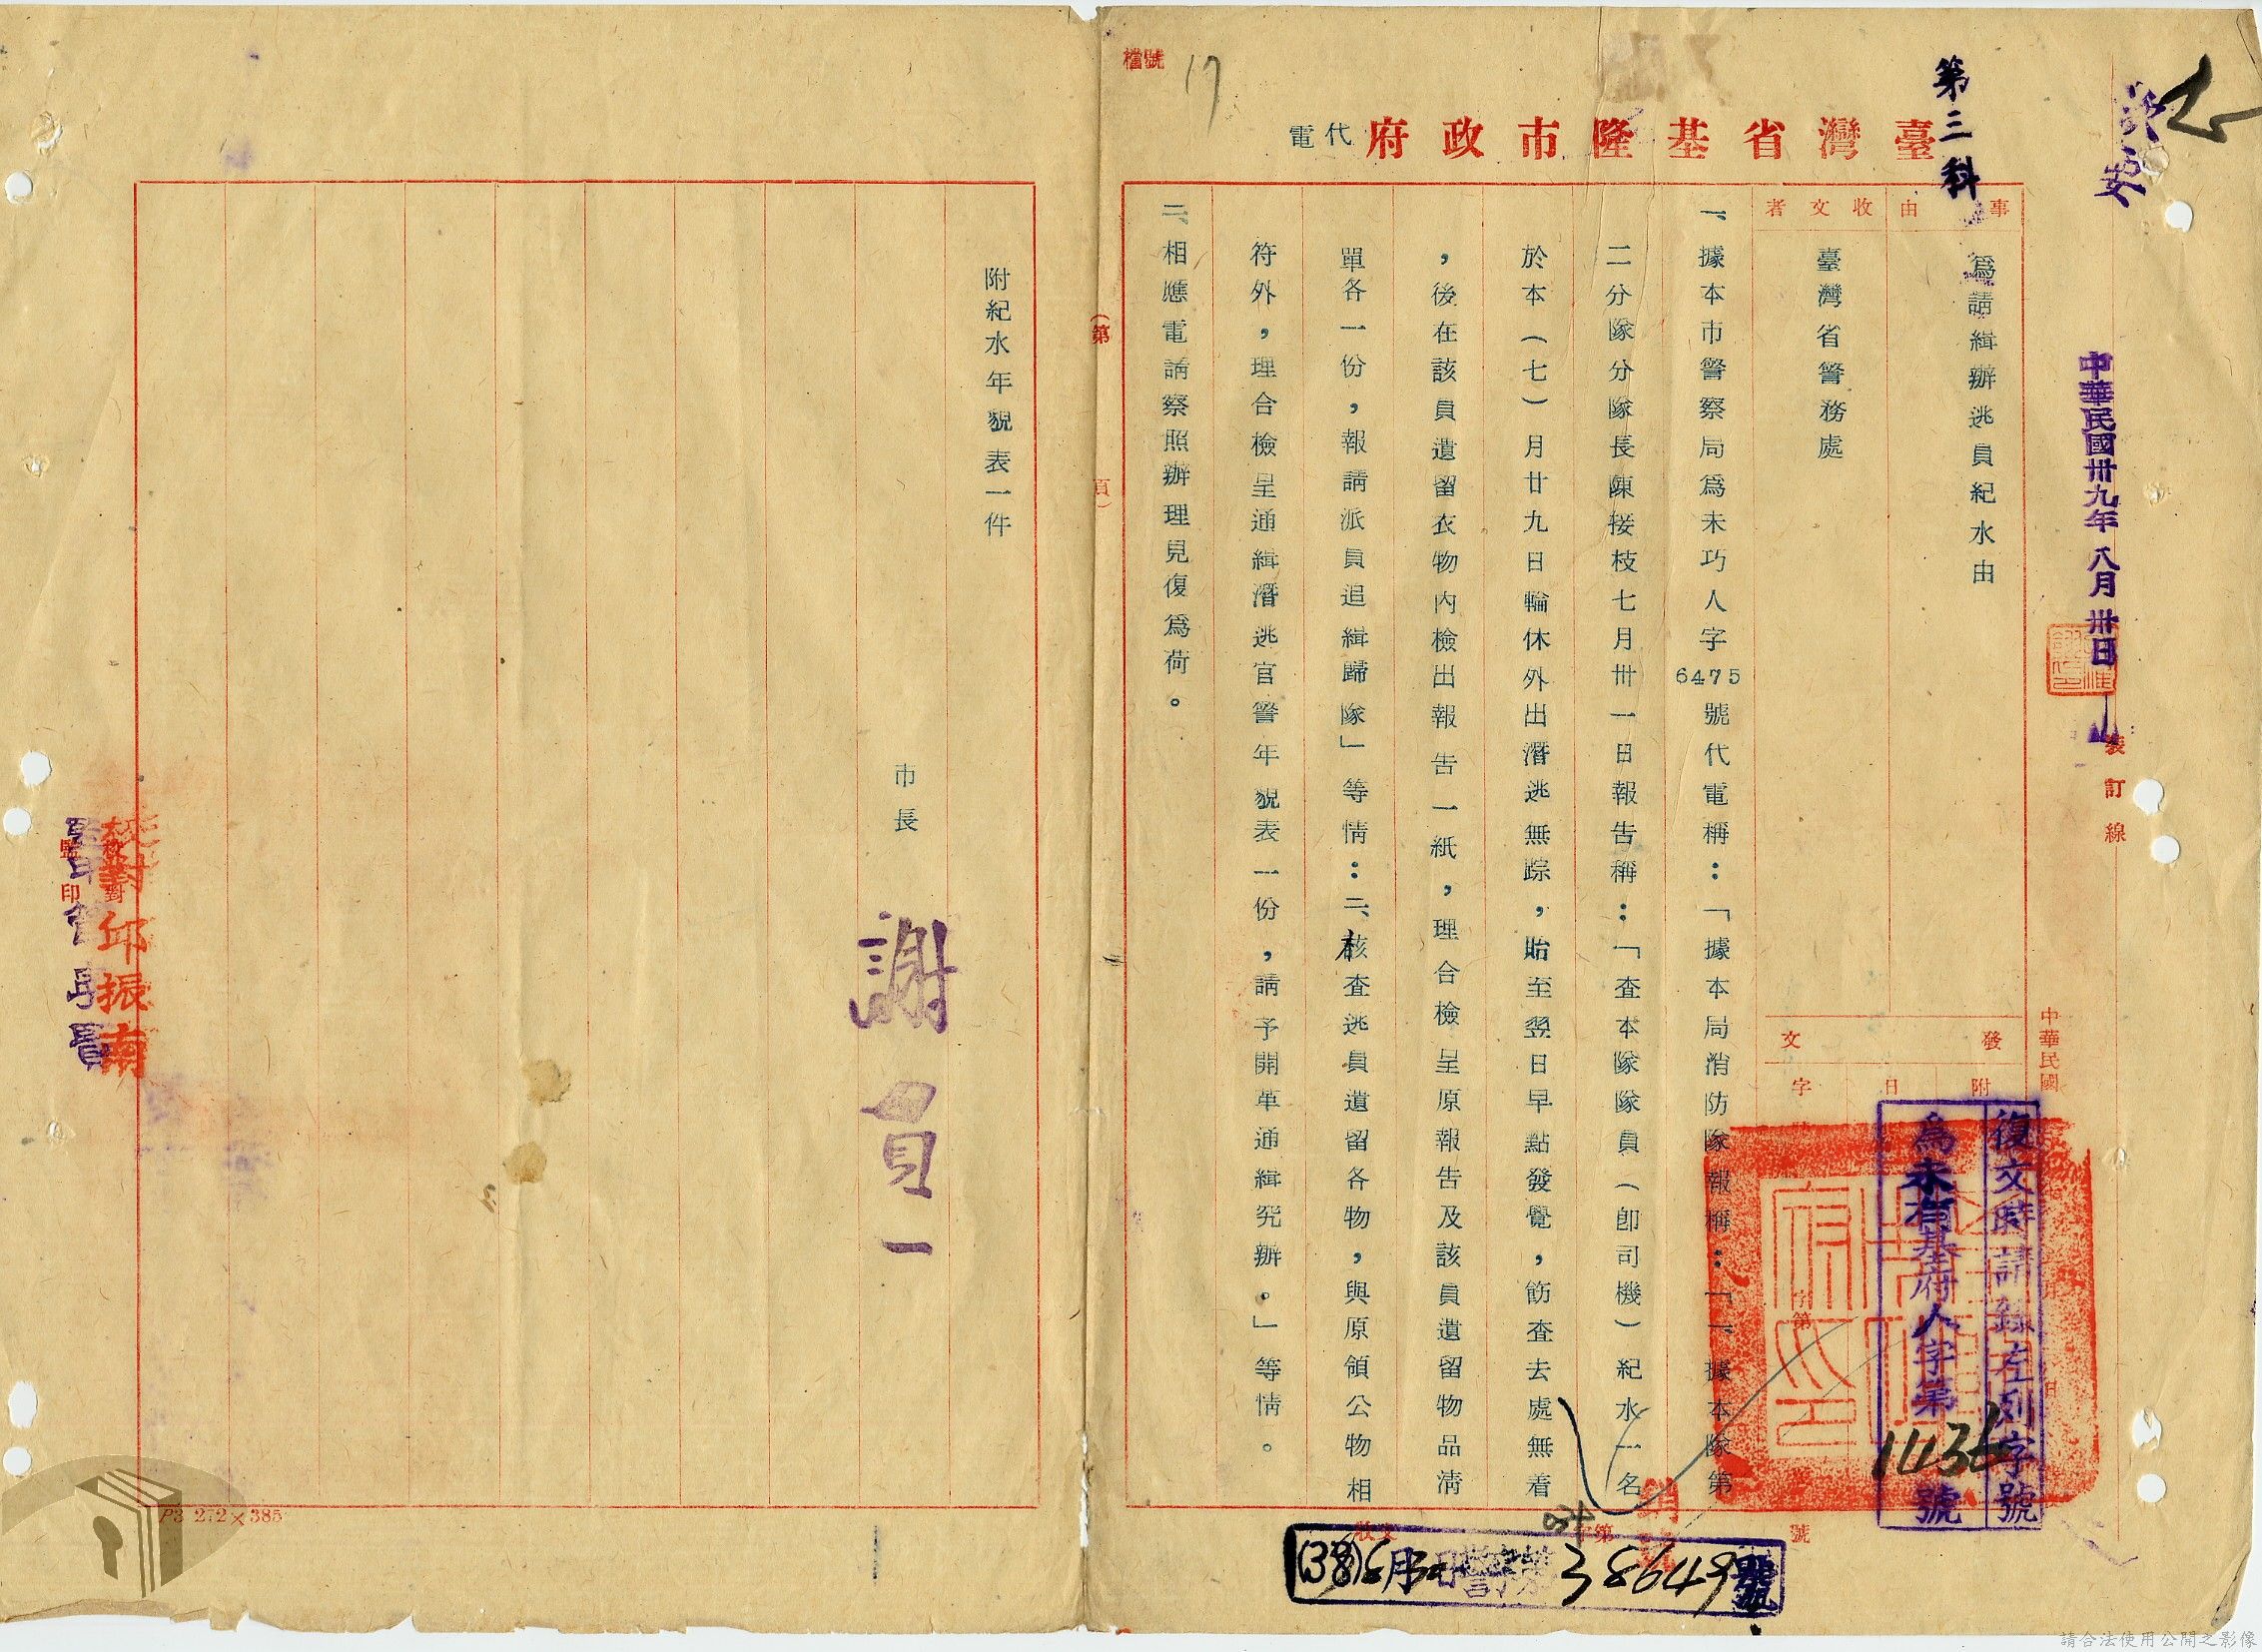 檔號
17
第三科
臺灣省基隆市政府代電
中華民國卅九年八月卅日
裝訂線
事由
為請緝辦逃員紀水由
收文者
臺灣省警務處
發文
附
日
字
中華民國
復文時請錄左列字號
為未有基府人字第
號
一、據本市警察局為未巧人字6475號代電稱：「據本局消防隊報稱：「一、據本隊第
二分隊分隊長陳接枝七月卅一日報告稱：「查本隊隊員（卽司機）紀水一名
於本（七）月廿九日輪休外出潛逃無踪，貽至翌日早點發覺，飭查去處無着
，後在該員遺留衣物內檢出報告一紙，理合檢呈原報告及該員遺留物品清
單各一份，報請派員追緝歸隊」等情：二、核查逃員遺留各物，與原領公物相
符外，理合檢呈通緝潛逃官警年貌表一份，請予開革通緝究辦。」等情。
二、相應電請察照辦理見復為荷。
（第 頁）
附紀水年貌表一件
市長
謝貫一
校對
校對邱振南
監印
P3 272×385
收文 字第 號
38649號
請合法使用公開之影像